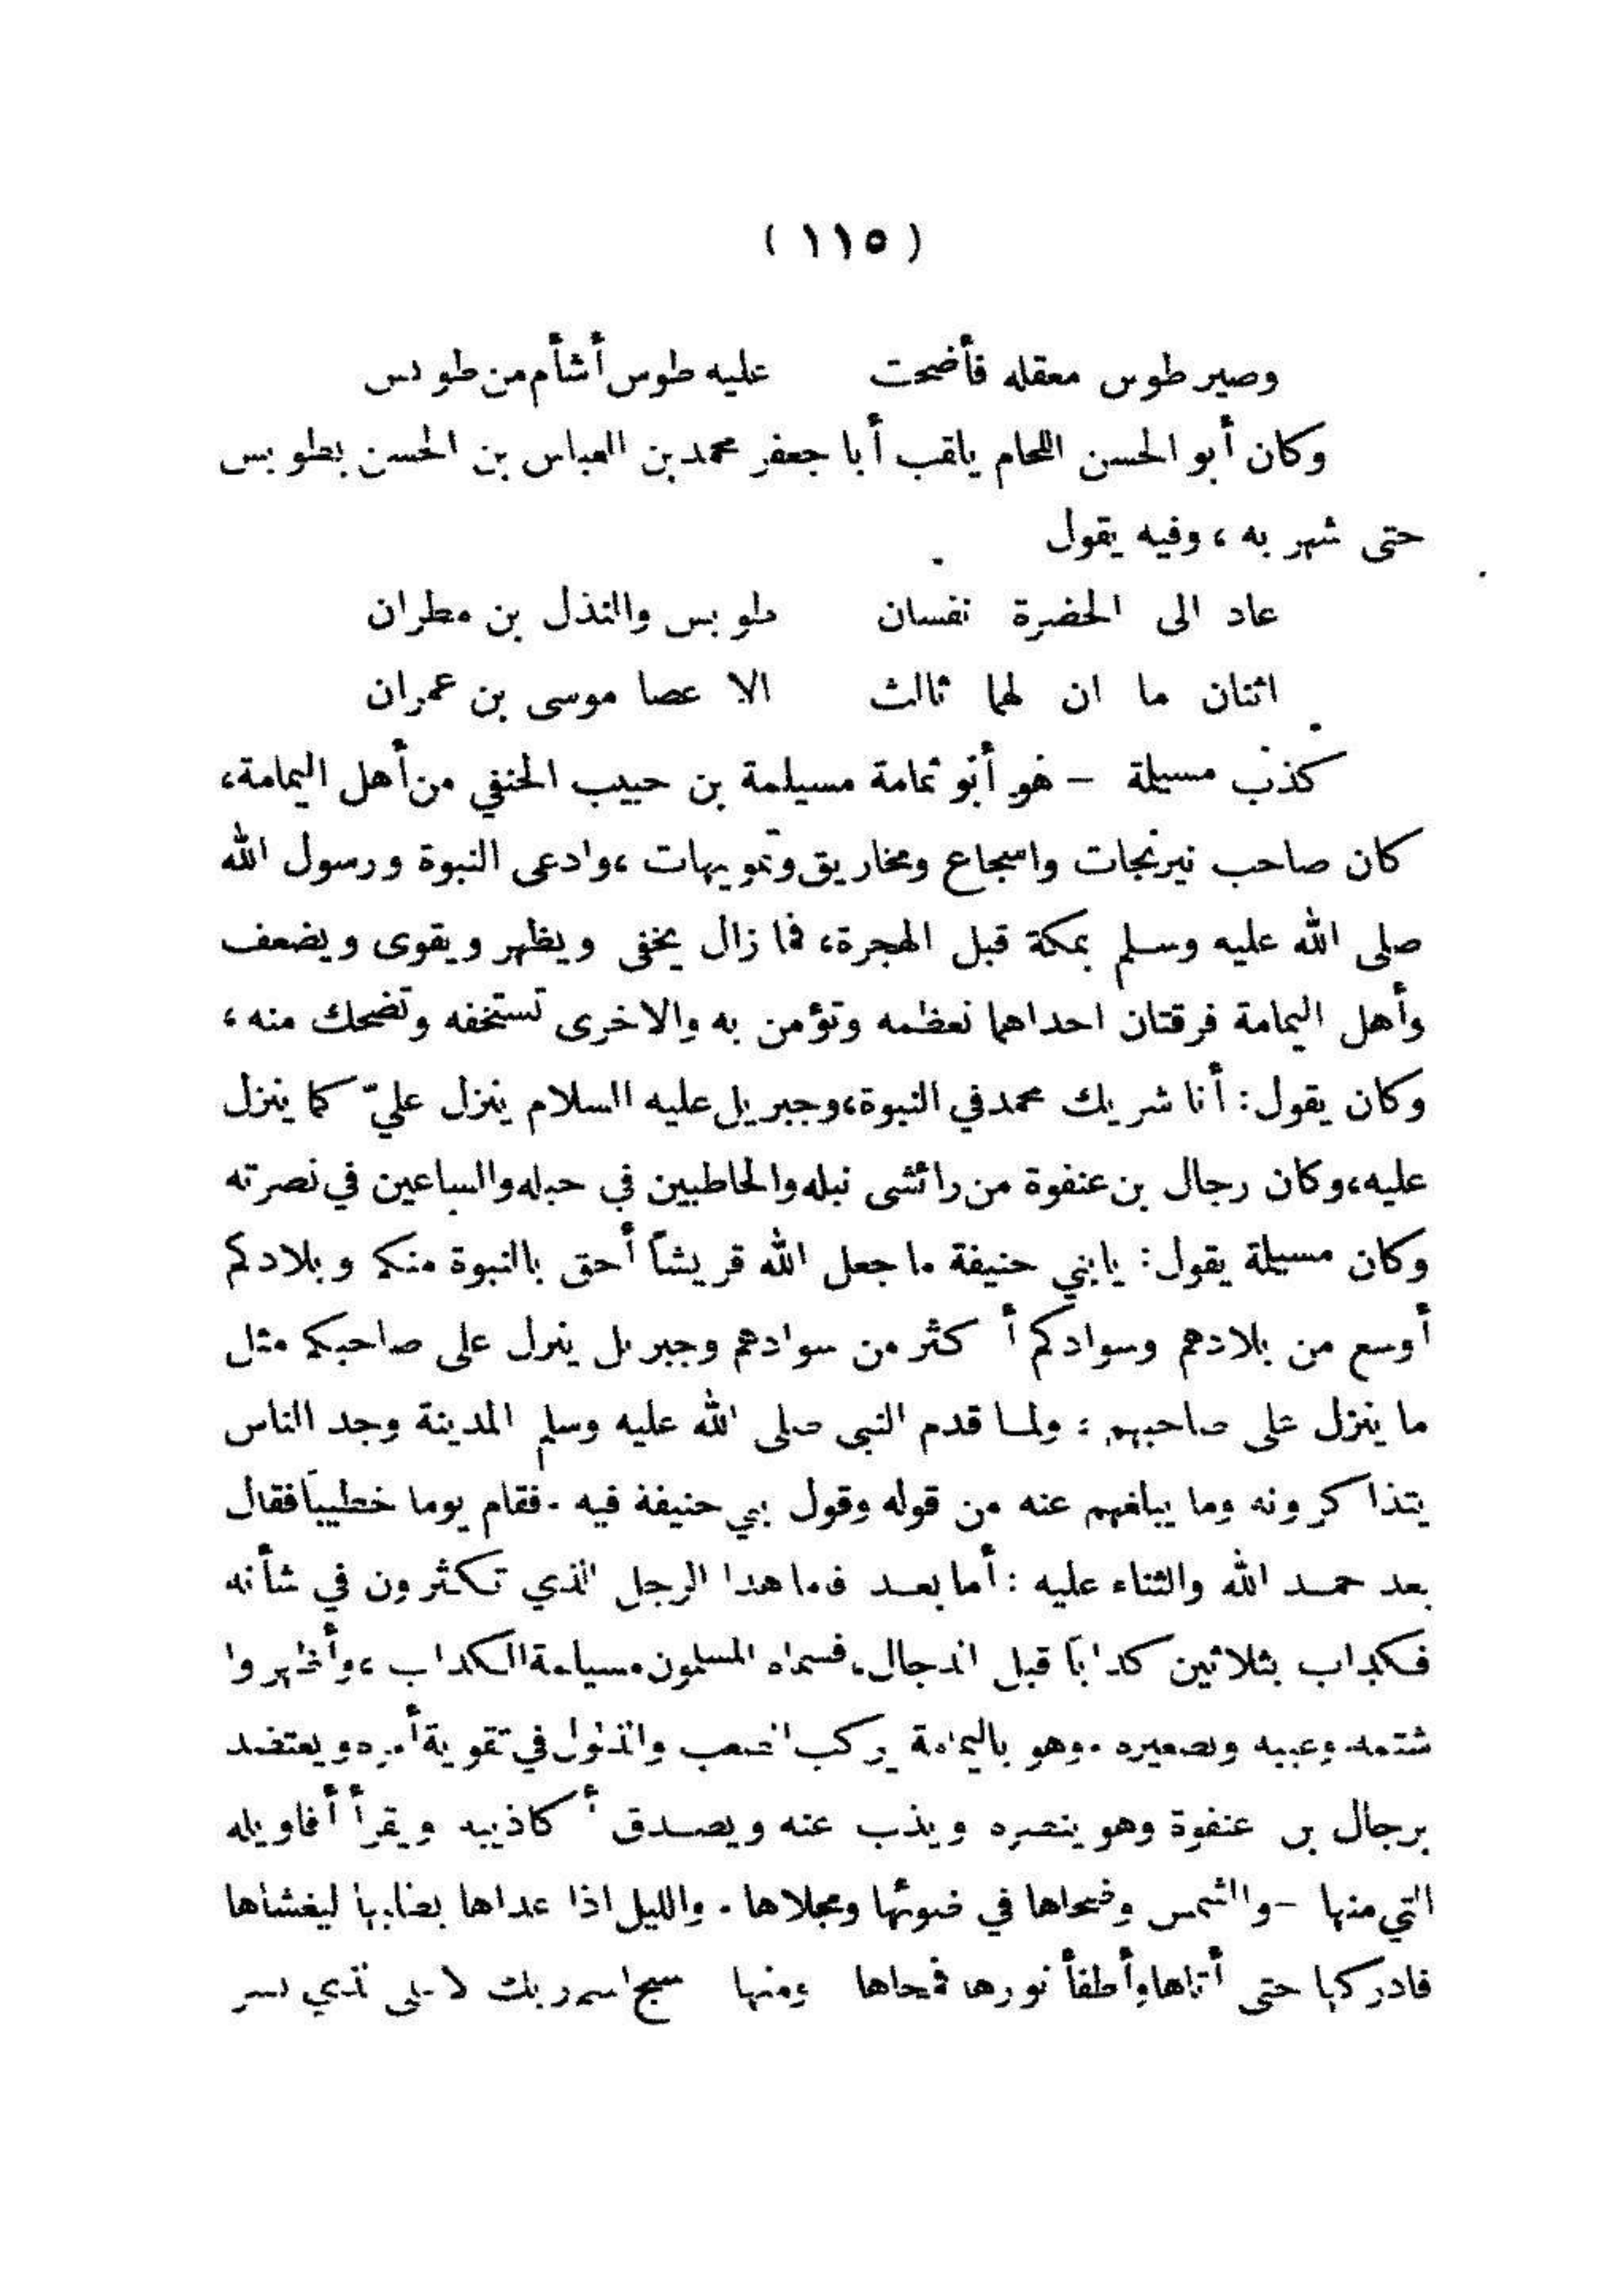 ( ١١٥ )
وصير طوس معقله فأضحت عليه طوس أشأم من طويس
وكان أبو الحسن اللحام يلقب أبا جعفر محمد بن العباس بن الحسن بطويس
حتى شهر به ، وفيه يقول
عاد الى الحضرة نفسان طويس والنذل بن مطران
اثنان ما ان لهما ثالث الا عصا موسى بن عمران
كذب مسيلمة - هو أبو ثمامة مسيلمة بن حبيب الحنفي من أهل اليمامة،
كان صاحب نيرنجات واسجاع ومخاريق وتمويهات ،وادعى النبوة ورسول الله
صلى الله عليه وسلم بمكة قبل الهجرة، فما زال يخفى ويظهر ويقوى ويضعف
وأهل اليمامة فرقتان احداهما تعظمه وتؤمن به والاخرى تستخفه وتضحك منه ،
وكان يقول: أنا شريك محمد في النبوة،وجبريل عليه السلام ينزل عليّ كما ينزل
عليه،وكان رجال بن عنفوة من رائشى نبله والحاطبين في حبله والساعين في نصرته
وكان مسيلمة يقول: يابني حنيفة ما جعل الله قريشاً أحق بالنبوة منكم وبلادكم
أوسع من بلادهم وسوادكم أكثر من سوادهم وجبريل ينزل على صاحبكم مثل
ما ينزل على صاحبهم : ولما قدم النبي صلى الله عليه وسلم المدينة وجد الناس
يتذاكرونه وما يبلغهم عنه من قوله وقول بني حنيفة فيه . فقام يوما خطيباً فقال
بعد حمد الله والثناء عليه : أما بعد فما هذا الرجل الذي تكثرون في شأنه
فكذاب بثلاثين كذاباً قبل الدجال . فسماه المسلمون مسيلمة الكذاب ،وأظهروا
شتمه وعيبه وتصغيره . وهو باليمامة يركب الصعب والذلول في تقوية أمره ويعتضد
برجال بن عنفوة وهو ينصره ويذب عنه ويصدق أكاذيبه ويقرأ أقاويله
التي منها - والشمس وضحاها في ضوئها ومجلاها . والليل اذا عداها يطلبها ليغشاها
فادركها حتى أتاها وأطفأ نورها فمحاها ومنها سبح اسم ربك الاعلى الذي يسر